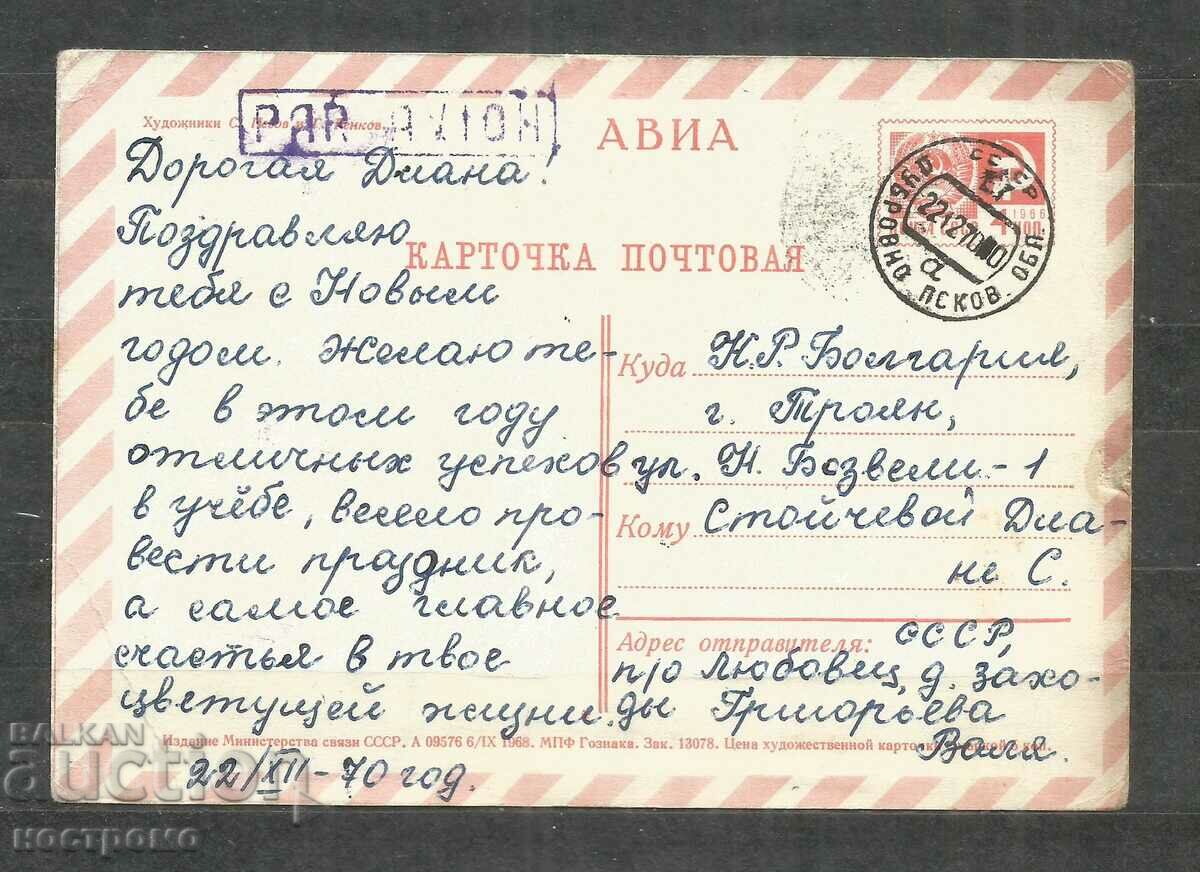 Художники С.
PAR AVION
АВИА
Дорогая Диана!
Поздравляю
тебя с Новым
годом. Желаю те-
бе в этом году
отличных успехов
в учёбе, весело про-
вести праздник,
а самое главное
счастья в твое
цветущей жизни.
22/XII-70 год.
КАРТОЧКА ПОЧТОВАЯ
СССР
ДУБРОВНО ПСКОВ. ОБЛ.
221270
а
1966
КОП.
Куда Н.Р. Болгария,
г. Троян,
ул. Н. Бозвели-1
Кому Стойчевой Диа-
не С.
Адрес отправителя: СССР,
п/о Любовец, д. Захо-
ды Григорьева
Валя.
Издание Министерства связи СССР. А 09576 6/IX 1968. МПФ Гознака. Зак. 13078. Цена художественной карточки
BALKAN
auction
НОСТРОМО